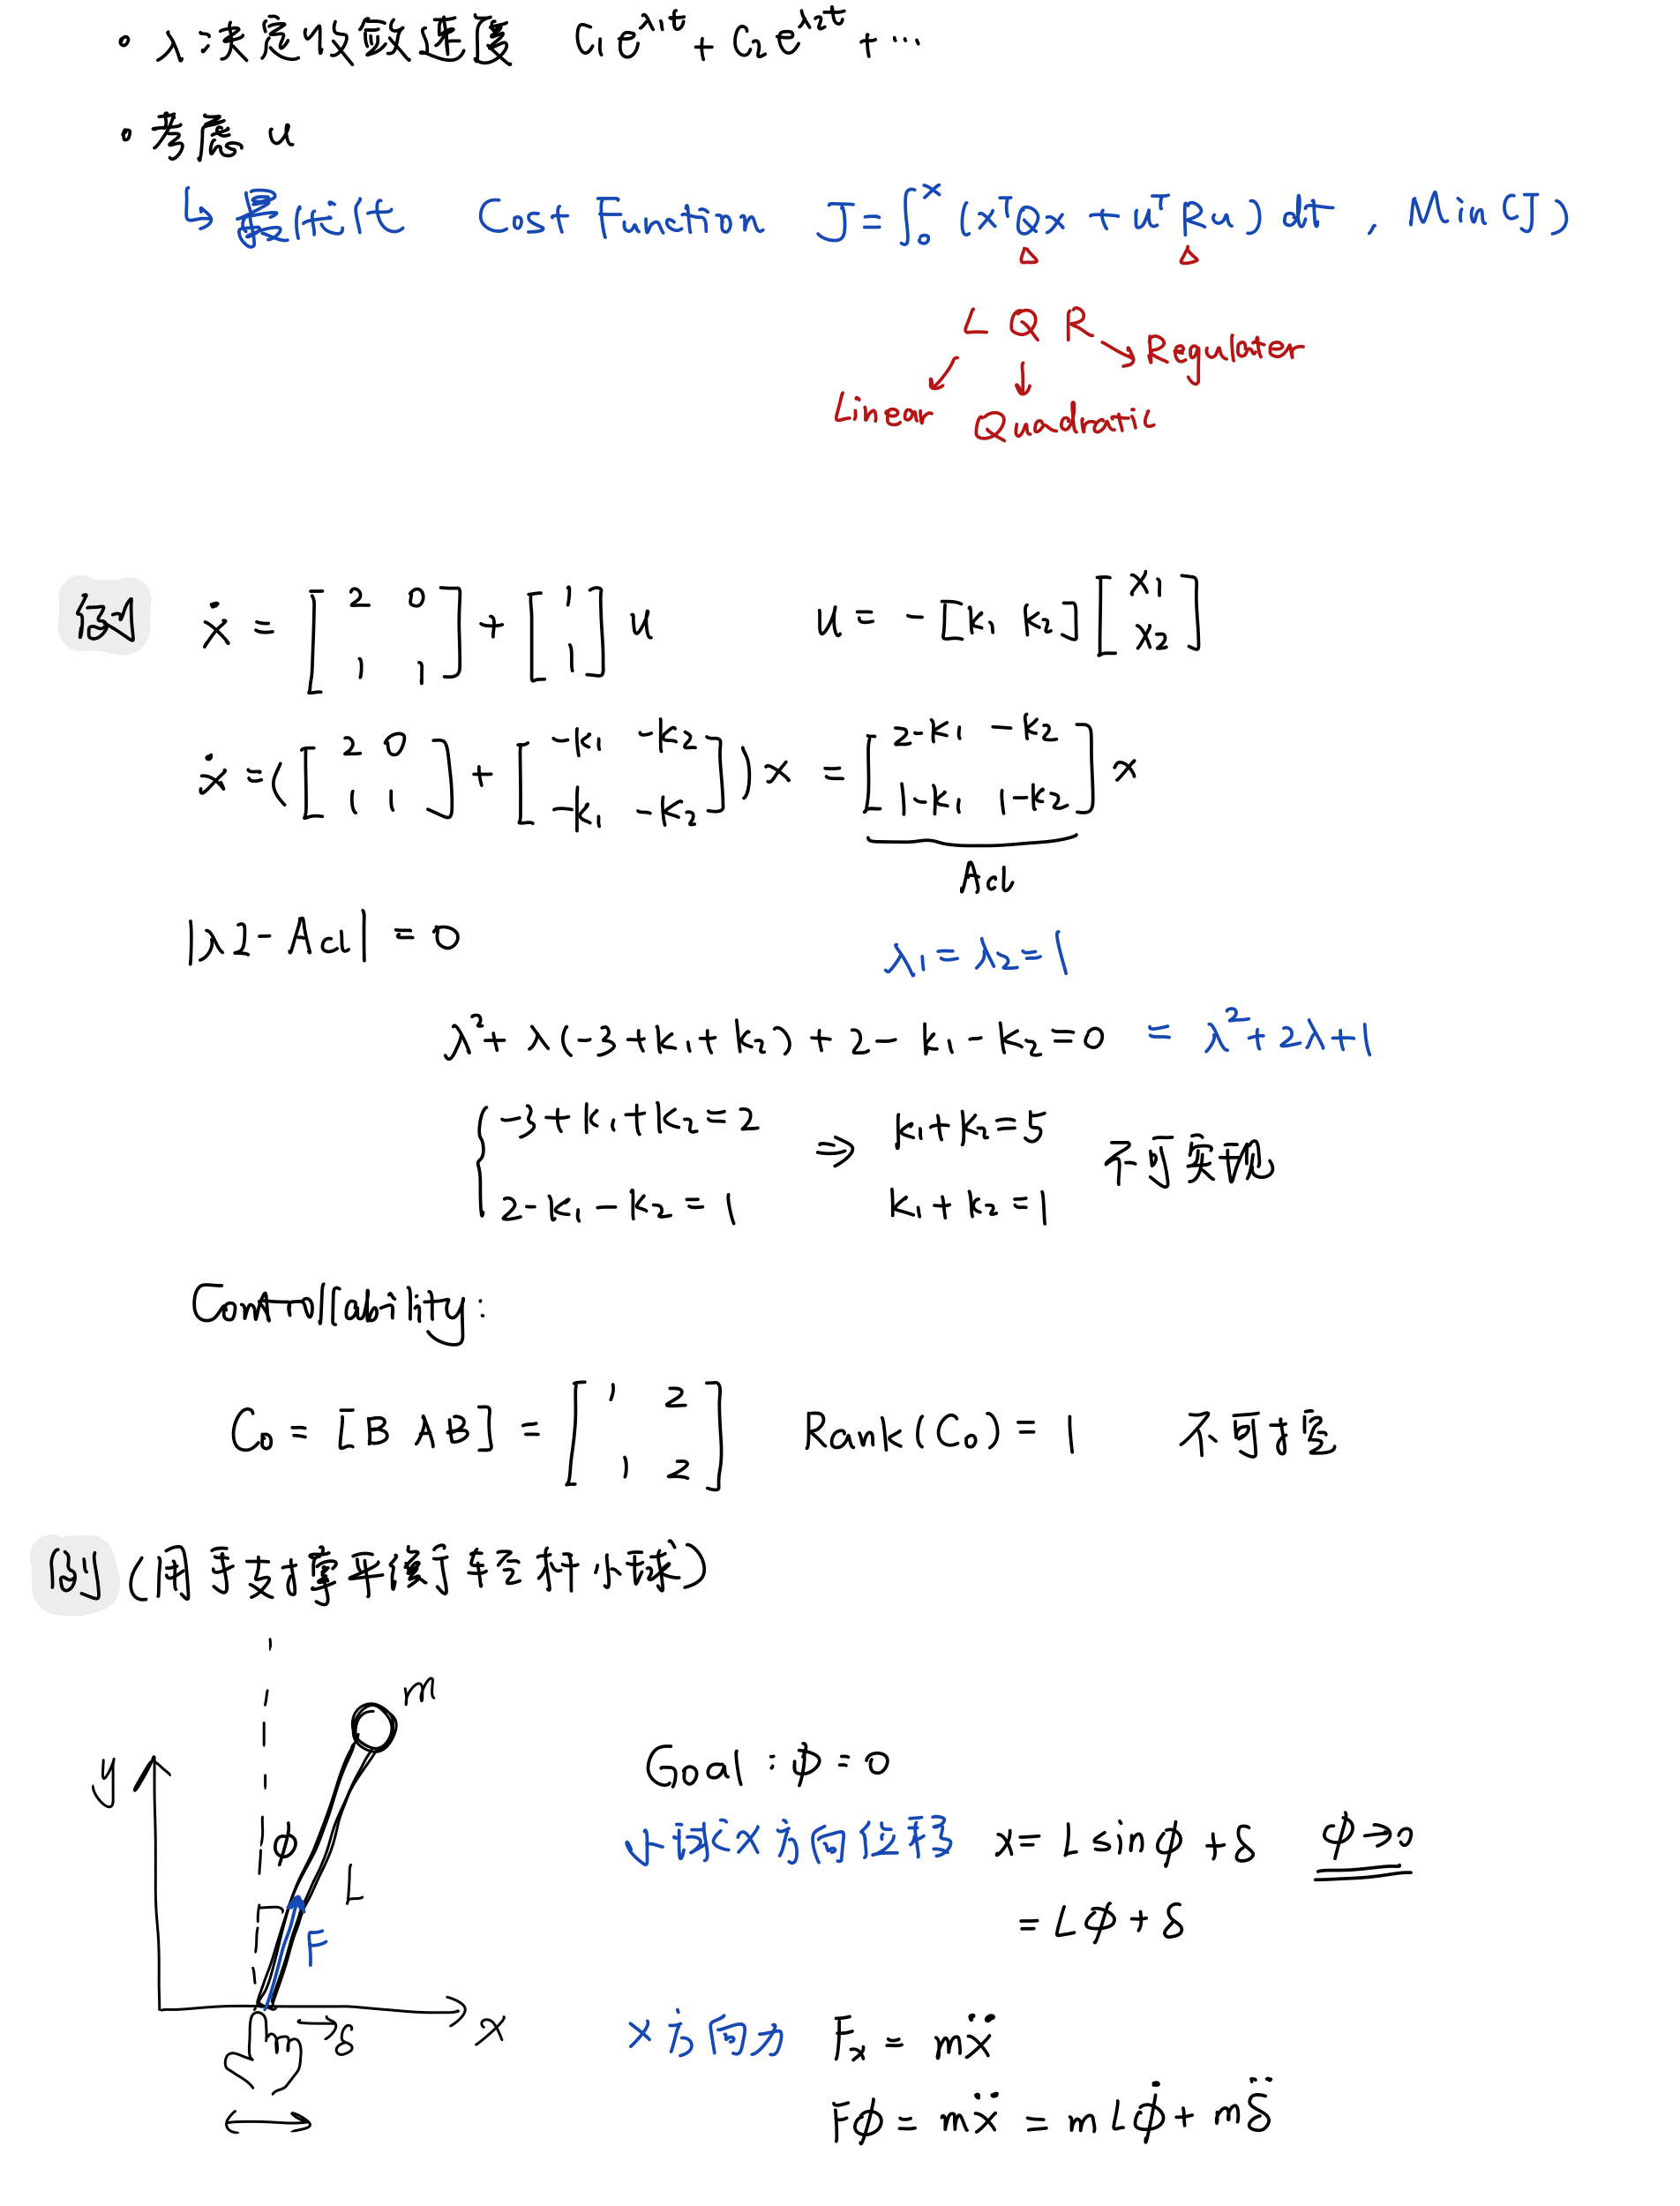 • λ决定收敛速度 C₁e^{λ₁t} + C₂e^{λ₂t} + …
• 考虑 u
↳ 最优化 Cost Function J = ∫₀^x (xᵀQx + uᵀRu) dt , Min(J)
△ △
L Q R
Linear Quadratic Regulater
例 ẋ = [2 0; 1 1] + [1; 1] u u = - [k₁ k₂] [x₁; x₂]
ẋ = ([2 0; 1 1] + [-k₁ -k₂; -k₁ -k₂]) x = [2-k₁ -k₂; 1-k₁ 1-k₂] x
Acl
|λI - Acl| = 0
λ₁ = λ₂ = 1
λ² + λ(-3+k₁+k₂) + 2 - k₁ - k₂ = 0 = λ² + 2λ + 1
{ -3+k₁+k₂ = 2 ⇒ k₁+k₂ = 5 不可实现
2-k₁-k₂ = 1 k₁+k₂ = 1
Controllability:
C₀ = [B AB] = [1 2; 1 2] Rank(C₀) = 1 不可控
例 (用手支撑平衡于轻杆小球)
m
y
φ
L
F
δ
x
Goal : φ = 0
小球x方向位移 x = L sinφ + δ φ→0
= Lφ + δ
x方向力 Fₓ = mẍ
Fφ = mẍ = mLφ̇ + mδ̈